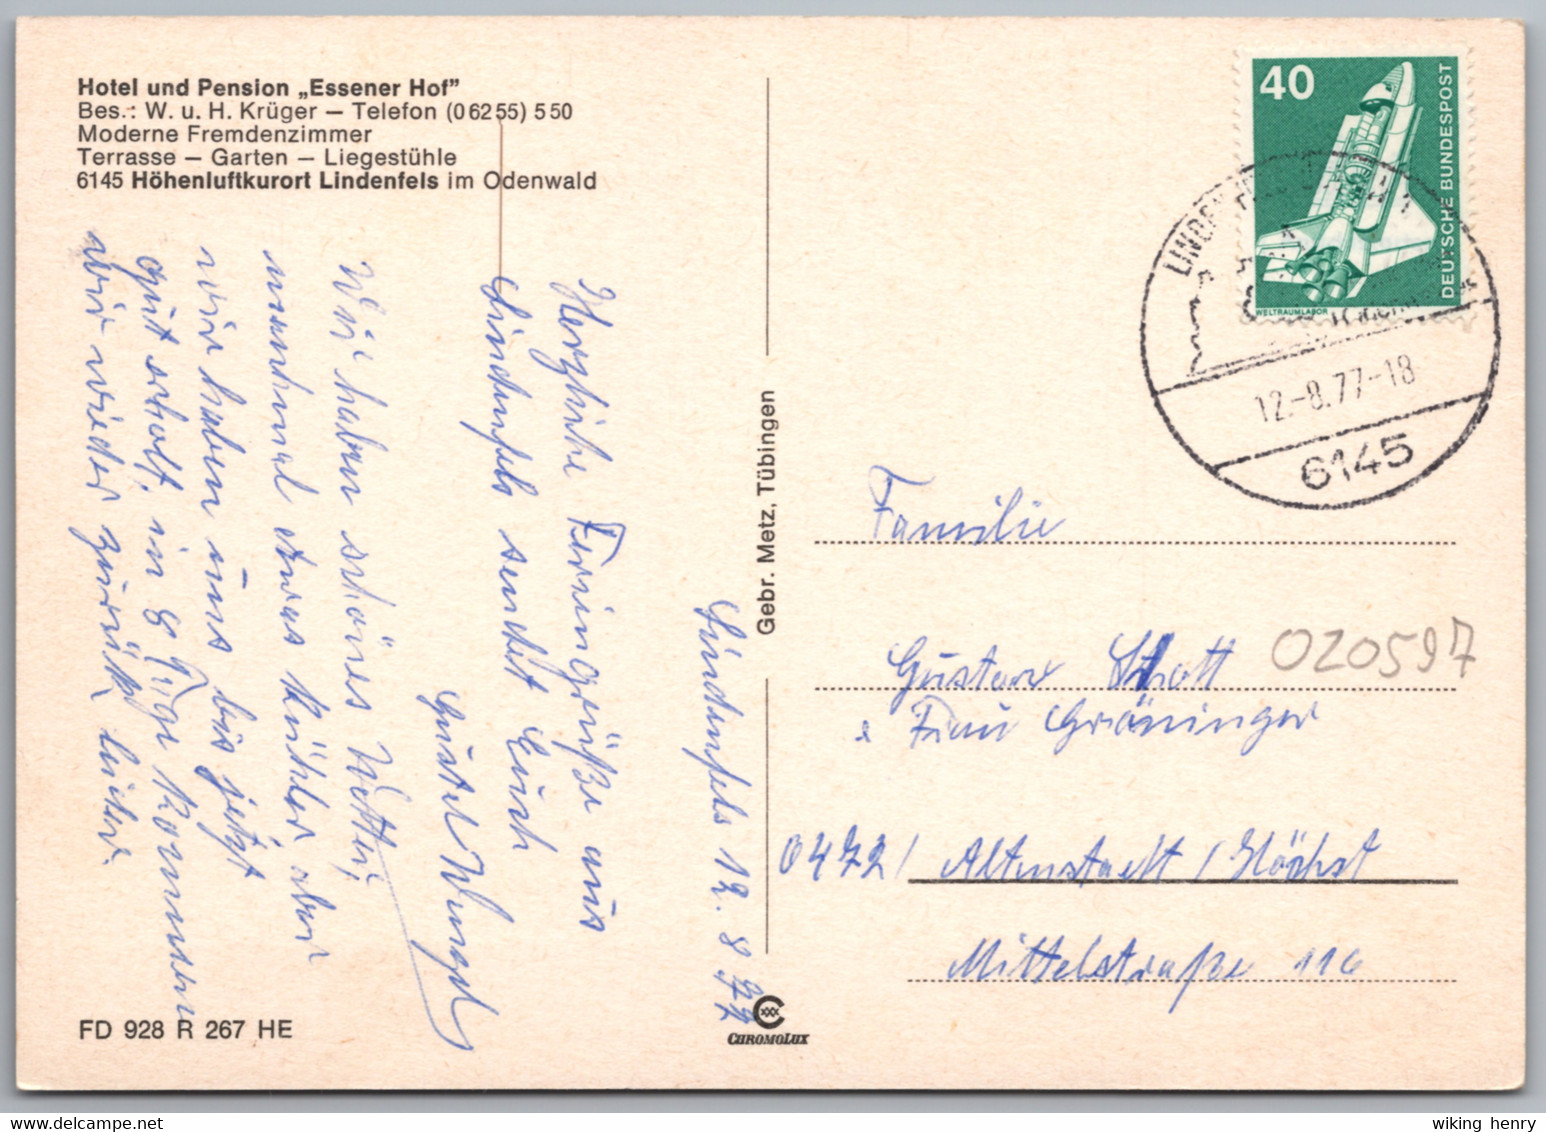 Hotel und Pension „Essener Hof”
Bes.: W. u. H. Krüger — Telefon (06255) 550
Moderne Fremdenzimmer
Terrasse — Garten — Liegestühle
6145 Höhenluftkurort Lindenfels im Odenwald
Lindenfels 12. 8 77
Herzliche Feriengrüße aus
Lindenfels sendet Euch
Gustel
Wir haben schönes Wetter,
manchmal etwas kühler aber
wir haben uns bis jetzt
gut erholt, in 8 Tage kommen
wir wieder zurück, leider
FD 928 R 267 HE
Gebr. Metz, Tübingen
CHROMOLUX
40
DEUTSCHE BUNDESPOST
WELTRAUMLABOR
12.-8.77-18
6145
Familie
Gustav
020597
Frau Gröninger
Altenstadt / Höchst
Mittelstraße 116
wiking henry